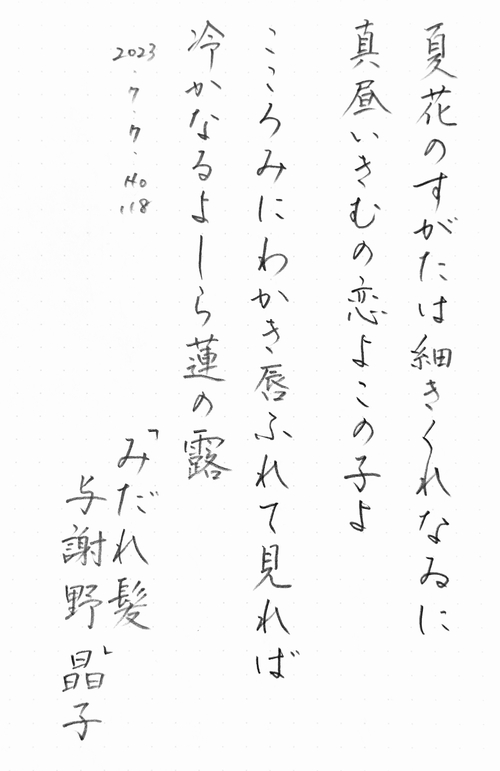 夏花のすがたは細きくれなゐに
真昼いきむの恋よこの子よ
こころみにわかき唇ふれて見れば
冷かなるよしら蓮の露
2023.7.7.No118
「みだれ髪」
与謝野晶子